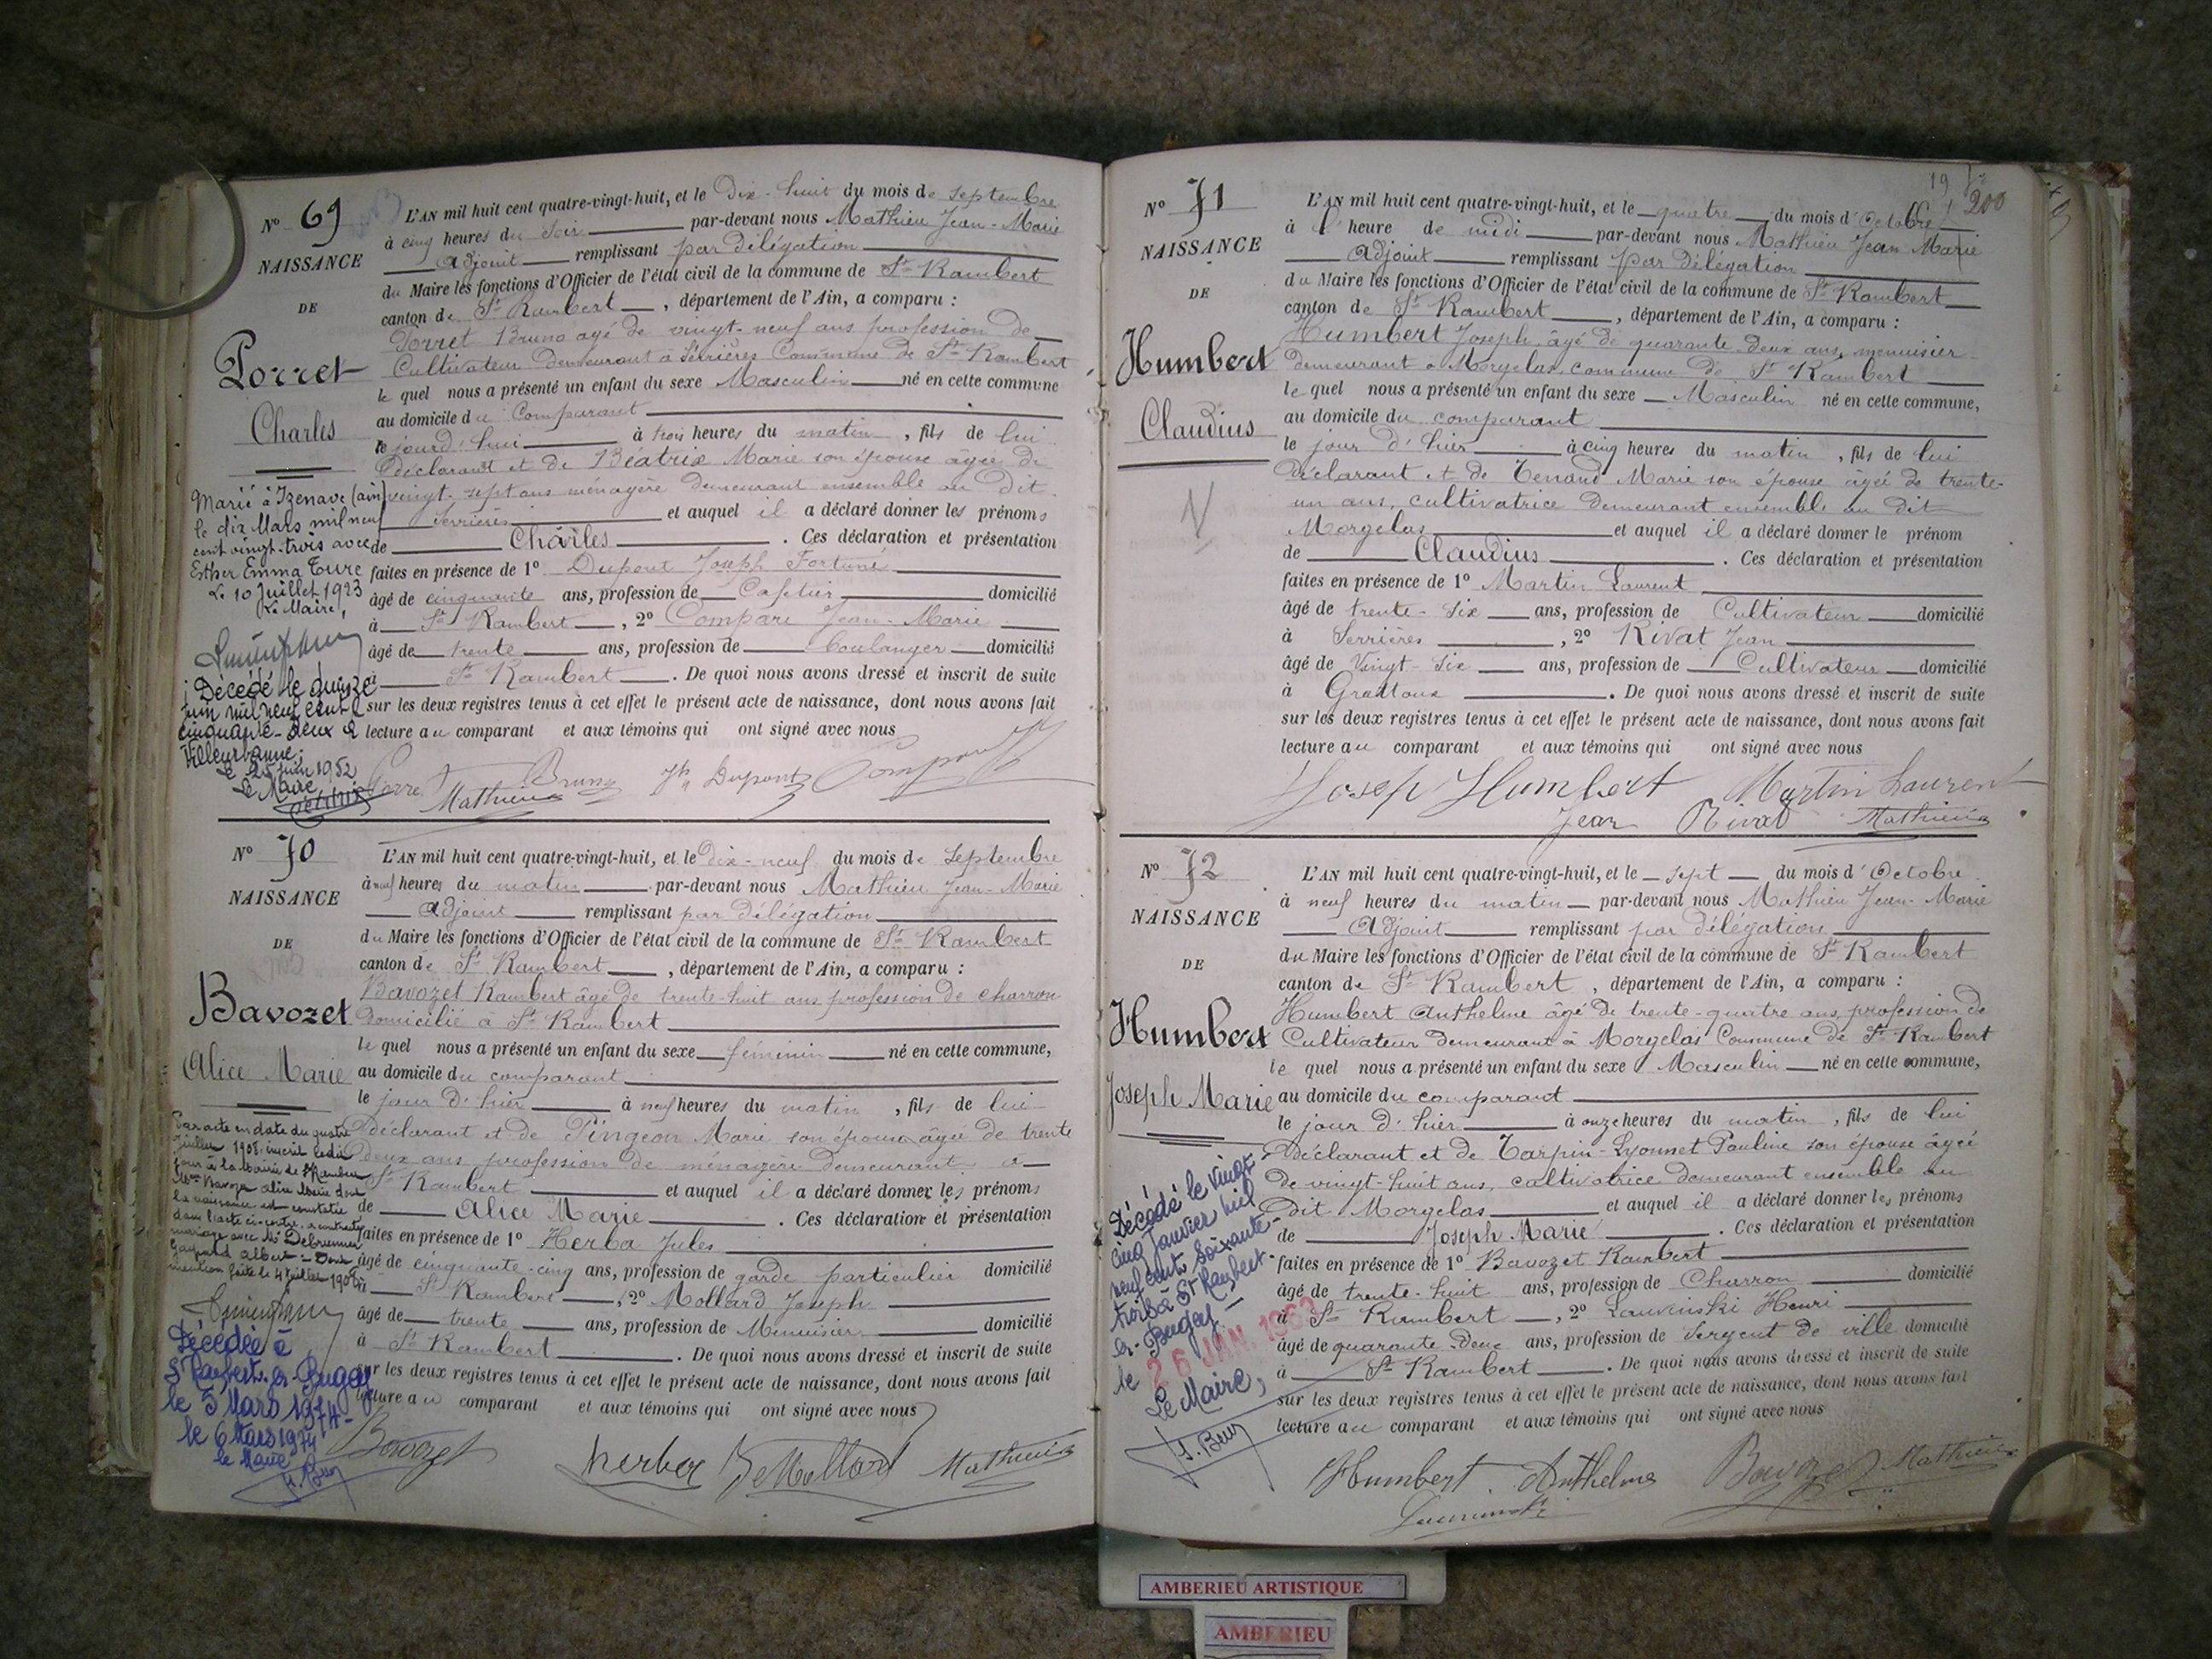 Nº 69
NAISSANCE
DE
Porret
Charles
L'AN mil huit cent quatre-vingt-huit, et le Dix-huit du mois de septembre
à cinq heures du soir par-devant nous Mathieu Jean-Marie
Adjoint remplissant par délégation
du Maire les fonctions d'Officier de l'état civil de la commune de St Rambert
canton de St Rambert, département de l'Ain, a comparu :
Porret Bruno agé de vingt-neuf ans profession de
Cultivateur demeurant à Serrières Commune de St Rambert
le quel nous a présenté un enfant du sexe Masculin né en cette commune
au domicile du Comparant
le jourd'hui à trois heures du matin, fils de lui
déclarant et de Béatrix Marie son épouse âgée de
vingt-sept ans ménagère demeurant ensemble au dit
Serrières et auquel il a déclaré donner les prénoms
de Charles. Ces déclaration et présentation
faites en présence de 1º Dupont Joseph Fortuné
âgé de cinquante ans, profession de Cafetier domicilié
à St Rambert, 2º Compare Jean-Marie
âgé de trente ans, profession de boulanger domicilié
à St Rambert. De quoi nous avons dressé et inscrit de suite
sur les deux registres tenus à cet effet le présent acte de naissance, dont nous avons fait
lecture au comparant et aux témoins qui ont signé avec nous
Porret Bruno Jh Dupont
Mathieu
Marié à Izenave (ain)
le dix Mars mil neuf
cent vingt-trois avec
Esther Emma Ture
Le 10 Juillet 1923
Le Maire,
Décédé le quinze
juin mil neuf cent
cinquante-deux à
Villeurbanne;
le 25 juin 1952
Le Maire
Nº 70
NAISSANCE
DE
Bavozet
Alice Marie
L'AN mil huit cent quatre-vingt-huit, et le Dix-neuf du mois de Septembre
à neuf heures du matin par-devant nous Mathieu Jean-Marie
Adjoint remplissant par délégation
du Maire les fonctions d'Officier de l'état civil de la commune de St Rambert
canton de St Rambert, département de l'Ain, a comparu :
Bavozet Rambert âgé de trente-huit ans profession de charron
domicilié à St Rambert
le quel nous a présenté un enfant du sexe féminin né en cette commune,
au domicile du comparant
le jour d'hier à neuf heures du matin, fils de lui
déclarant et de Pingeon Marie son épouse âgée de trente
deux ans profession de ménagère demeurant à
St Rambert et auquel il a déclaré donner les prénoms
de Alice Marie. Ces déclaration et présentation
faites en présence de 1º Herba Jules
âgé de cinquante-cinq ans, profession de garde particulier domicilié
à St Rambert, 2º Mollard Joseph
âgé de trente ans, profession de Menuisier domicilié
à St Rambert. De quoi nous avons dressé et inscrit de suite
sur les deux registres tenus à cet effet le présent acte de naissance, dont nous avons fait
lecture au comparant et aux témoins qui ont signé avec nous
Bavozet herba Mollard Mathieu
Par acte en date du quatre
juillet 1908, inscrit ledit
jour à la Mairie de St Rambert
Bavozet Alice Marie dont
la naissance est constatée
dans l'acte ci-contre, a contracté
mariage avec Mr Debrunner
Gaspard Albert = Dont
mention faite le 4 juillet 1908
Décédée à
St Rambert-en-Bugey
le 5 Mars 1974-
le 6 Mars 1974
le Maire
Nº 71
NAISSANCE
DE
Humbert
Claudius
19
200
L'AN mil huit cent quatre-vingt-huit, et le quatre du mois d'Octobre
à l'heure de midi par-devant nous Mathieu Jean-Marie
Adjoint remplissant par délégation
du Maire les fonctions d'Officier de l'état civil de la commune de St Rambert
canton de St Rambert, département de l'Ain, a comparu :
Humbert Joseph âgé de quarante-deux ans, menuisier
demeurant à Morgelas, commune de St Rambert
le quel nous a présenté un enfant du sexe Masculin né en cette commune,
au domicile du comparant
le jour d'hier à cinq heures du matin, fils de lui
déclarant et de Tenand Marie son épouse âgée de trente-
un ans, cultivatrice demeurant ensemble au dit
Morgelas et auquel il a déclaré donner le prénom
de Claudius. Ces déclaration et présentation
faites en présence de 1º Martin Laurent
âgé de trente-six ans, profession de Cultivateur domicilié
à Serrières, 2º Rivat Jean
âgé de Vingt-six ans, profession de Cultivateur domicilié
à Grattoux. De quoi nous avons dressé et inscrit de suite
sur les deux registres tenus à cet effet le présent acte de naissance, dont nous avons fait
lecture au comparant et aux témoins qui ont signé avec nous
Josep Humbert Martin Laurent
Jean Rivat Mathieu
Nº 72
NAISSANCE
DE
Humbert
Joseph Marie
L'AN mil huit cent quatre-vingt-huit, et le sept du mois d'Octobre
à neuf heures du matin par-devant nous Mathieu Jean-Marie
Adjoint remplissant par délégation
du Maire les fonctions d'Officier de l'état civil de la commune de St Rambert
canton de St Rambert, département de l'Ain, a comparu :
Humbert Anthelme âgé de trente-quatre ans, profession de
Cultivateur demeurant à Morgelas Commune de St Rambert
le quel nous a présenté un enfant du sexe Masculin né en cette commune,
au domicile du comparant
le jour d'hier à onze heures du matin, fils de lui
déclarant et de Tarpin-Lyonnet Pauline son épouse âgée
de vingt-huit ans, cultivatrice demeurant ensemble au
dit Morgelas et auquel il a déclaré donner les prénoms
de Joseph Marie. Ces déclaration et présentation
faites en présence de 1º Bavozet Rambert
âgé de trente-huit ans, profession de Charron domicilié
à St Rambert, 2º Henri
âgé de quarante-deux ans, profession de Sergent de ville domicilié
à St Rambert. De quoi nous avons dressé et inscrit de suite
sur les deux registres tenus à cet effet le présent acte de naissance, dont nous avons fait
lecture au comparant et aux témoins qui ont signé avec nous
Humbert Anthelme Bavozet Mathieu
Décédé le vingt-
cinq Janvier mil
neuf cent soixante-
trois à St Rambert-
en-Bugey-
le 26 JAN. 1963
Le Maire,
AMBERIEU ARTISTIQUE
AMBERIEU